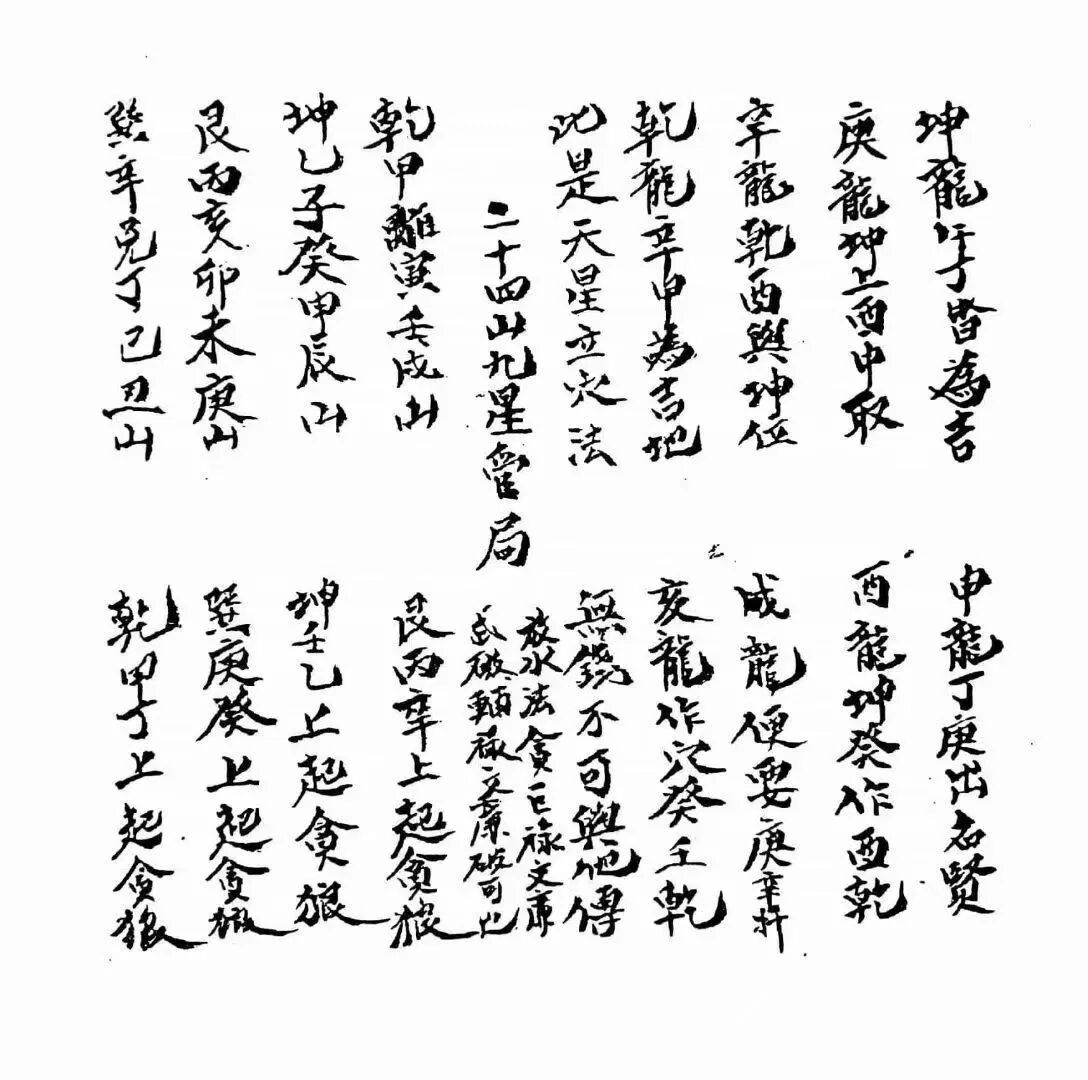 坤龍午丁皆為吉
申龍丁庚出名賢
庚龍坤上酉中取
酉龍坤癸作酉乾
辛龍乾酉與坤位
戌龍便要庚辛扦
乾龍辛申為吉地
亥龍作穴癸壬乾
此是天星立穴法
無錢不可與他傳
二十四山九星管局
放水法貪巨祿文廉
武破輔祿文廉破可出
乾甲離寅壬戌山
艮丙辛上起貪狼
坤乙子癸申辰山
坤壬乙上起貪狼
艮丙亥卯未庚山
巽庚癸上起貪狼
巽辛兌丁巳丑山
乾甲丁上起貪狼